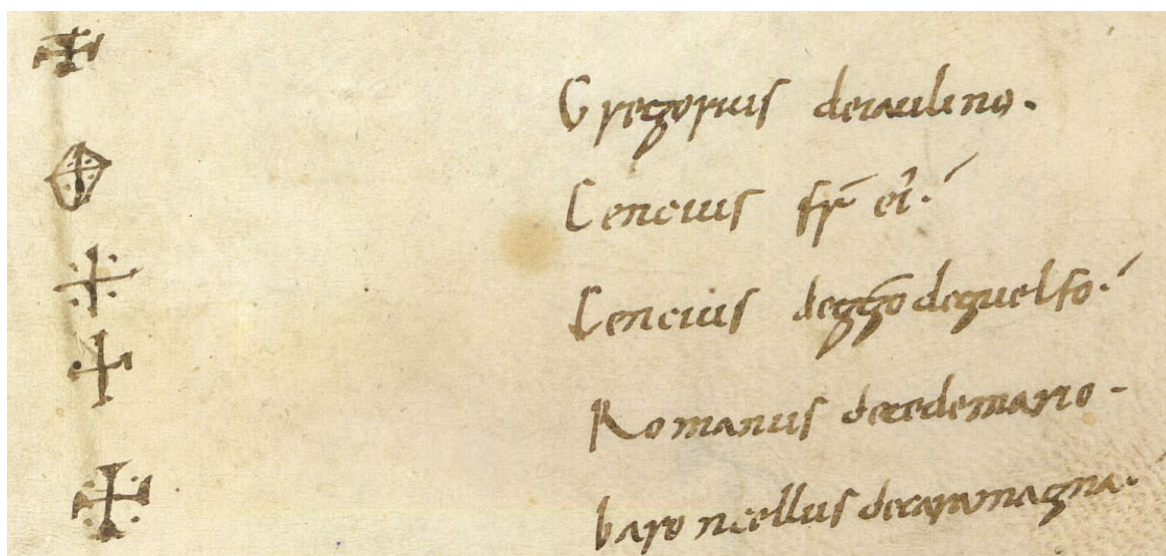 Gregorius deraulino.
Cencius fr̄ ei᾽.
Cencius degḡo deguelfo.
Romanus decedemario.
baroncellus decaramagna.